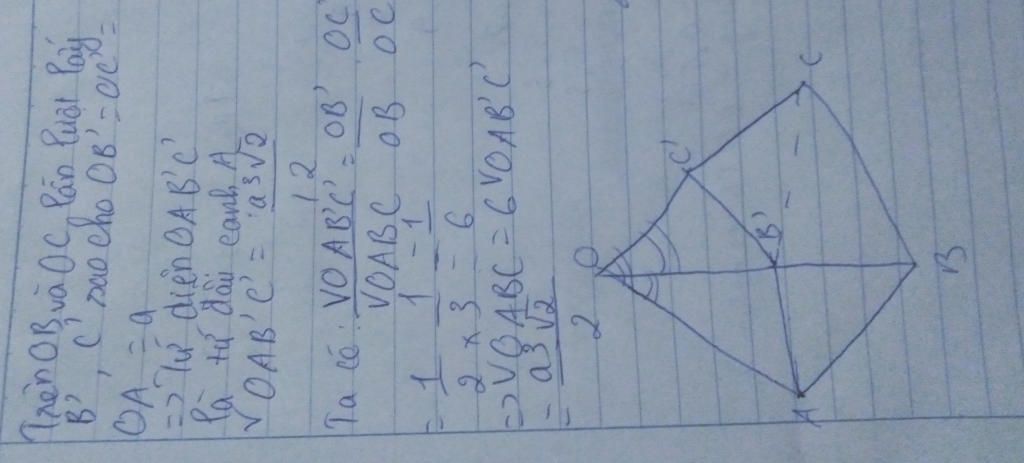 Trên OB và OC lần lượt lấy
B', C' sao cho OB' = OC' =
OA = a
=> Tứ diện OAB'C'
là tứ đều cạnh A
VOAB'C' = a3√2
12
Ta có: VOAB'C' = OB' OC'
VOABC OB OC
= 1 1 - 1
2 x 3 - 6
=> VOABC = 6VOAB'C'
= a3√2
2
O
C'
C
B'
A
B